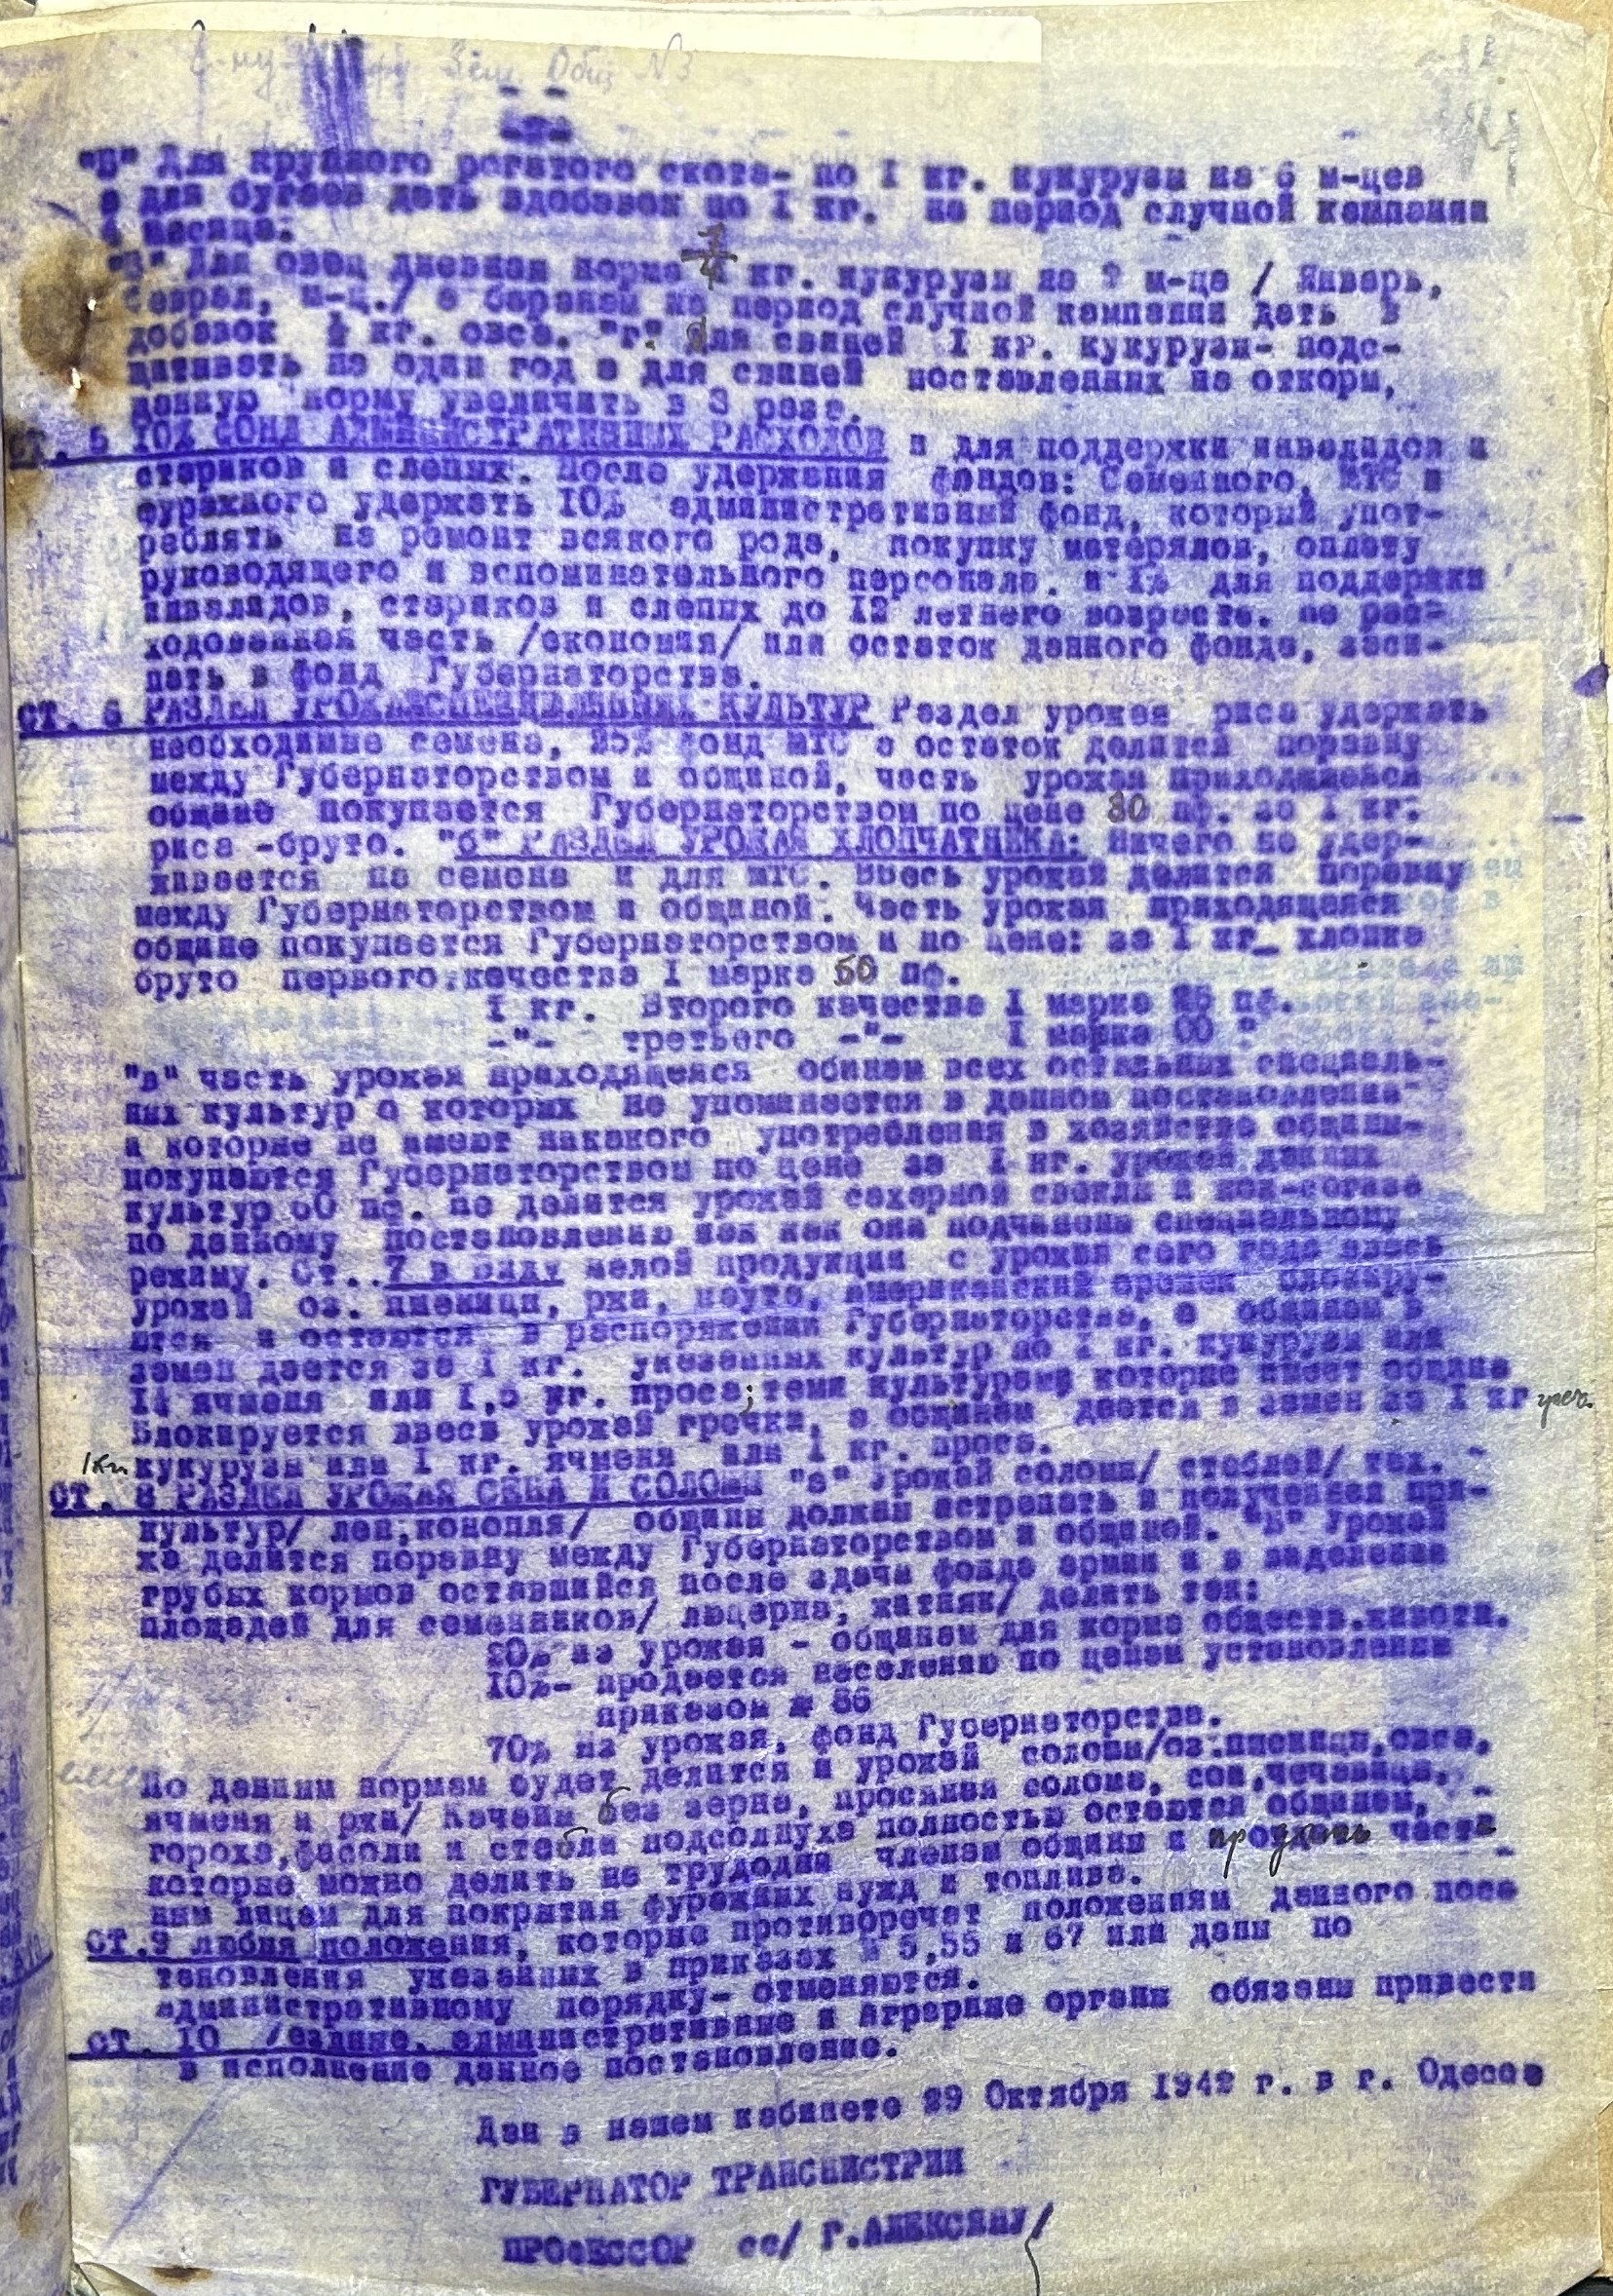 Зем. Общ №3
"Б" Для крупного рогатого скота- по I кг. кукурузы на 6 м-цев
а для бугаев дать вдобавок по I кг. на период случной кампании
месяца.
"В" Для овец дневная норма кг. кукурузы на 2 м-ца / Январь,
феврал, м-ц./ а баранам на период случной кампании дать в
добавок кг. овса. "г" для свиней I кг. кукурузы- подс-
читывать на один год а для свиней поставленных на откорм,
данную норму увеличить в 3 раза.
СТ. 5 10% ФОНД АДМИНИСТРАТИВНЫХ РАСХОДОВ и для поддержки инвалидов и
стариков и слепых. После удержания фондов: Семенного, МТС и
фуражного удержать 10% административный фонд, который упот-
реблять на ремонт всякого рода, покупку матерялов, оплату
руководящего и вспоминательного персонала. и 1% для поддержки
инвалидов, стариков и слепых до 12 летнего возраста. не рас-
ходованная часть /економия/ или остаток данного фонда, засы-
пать в фонд Губернаторства.
СТ. 6 РАЗДЕЛ УРОЖАЯ КУЛЬТУР Раздел урожая риса удержать
необходимые семена, 25% фонд МТС а остаток делится поравну
между Губернаторством и общиной, часть урожая приходящейся
общине покупается Губернаторством по цене 80 пф. за I кг.
риса -бруто. "б" РАЗДЕЛ УРОЖАЯ ХЛОПЧАТНИКА: Ничего не удер-
живается на семена и для МТС. Ввесь урожай делится поравну
между Губернаторством и общиной. Часть урожая приходящейся
общине покупается Губернаторством и по цене: за I кг_ хлопка
бруто первого качества I марка 50 пф.
I кг. Второго качества I марка 25 пф.
-"- третьего -"- I марка 00 "
"в" часть урожая приходящейся обинам всех остальных специаль-
ных культур о которых не упоминается в данном постановлении
и которые не имеют никакого употребления в хозяйстве общины-
покупаются Губернаторством по цене за I кг. урожая данных
культур 60 пф. не делится урожай сахарной свеклы и кок-сагыза
по данному постановлению как она подчинена специальному
режиму. Ст. 7 в виду малой продукции с урожая сего года ввесь
урожай оз. пшеницы, ржа, неута, блокиру-
ится и остаются в распоряжении Губернаторства, а общинам в
замен дается за I кг. указанных культур по кг. кукурузы или
ячменя или 1,5 кг. проса; теми культурами которые имеет община
Блокируется ввесь урожай гречки, а общинам дается в замен за I кг греч.
1 кг. кукурузы или I кг. ячменя или I кг. проса.
СТ. 8 РАЗДЕЛ УРОЖАЯ СЕНА И СОЛОМЫ "а" Урожай соломы/ стеблей/ тех. -
культур/ лен,конопля/ общины должны и полученная пря-
жа делится поравну между Губернаторством и общиной. "Б" Урожай
грубых кормов оставшийся после сдачи фонда армии и в выделения
площадей для семенников/ люцерна, житняк/ делить так:
20% из урожая - общинам для корма обществ.живота.
10%- продается населению по ценам установленым
приказом № 56
70% из урожая, фонд Губернаторства.
По данным нормам будет делится и урожай соломы/оз.пшеницы,овса,
ячменя и ржи/ Качаны без зерна, просяная солома, сои,чечевица,
гороха,фасоли и стебли подсолнуха полностью остаются общинам, -
которые можно делить на трудодни членам общины и продать часть -
ным лицам для покрытия фуражных нужд и топлива.
СТ.9 любия положения, которые противоречат положениям данного пос-
тановления указанных в приказах № 5,55 и 67 или даны по
административному порядку- отменяются.
СТ. 10 административные и аграрные органы обязаны привести
в исполнение данное постановление.
Дан в нашем кабинете 29 Октября 1942 г. в г. Одессе
ГУБЕРНАТОР ТРАНСНИСТРИИ
ПРОФЕССОР сс/ Г.АЛЕКСЯНУ/